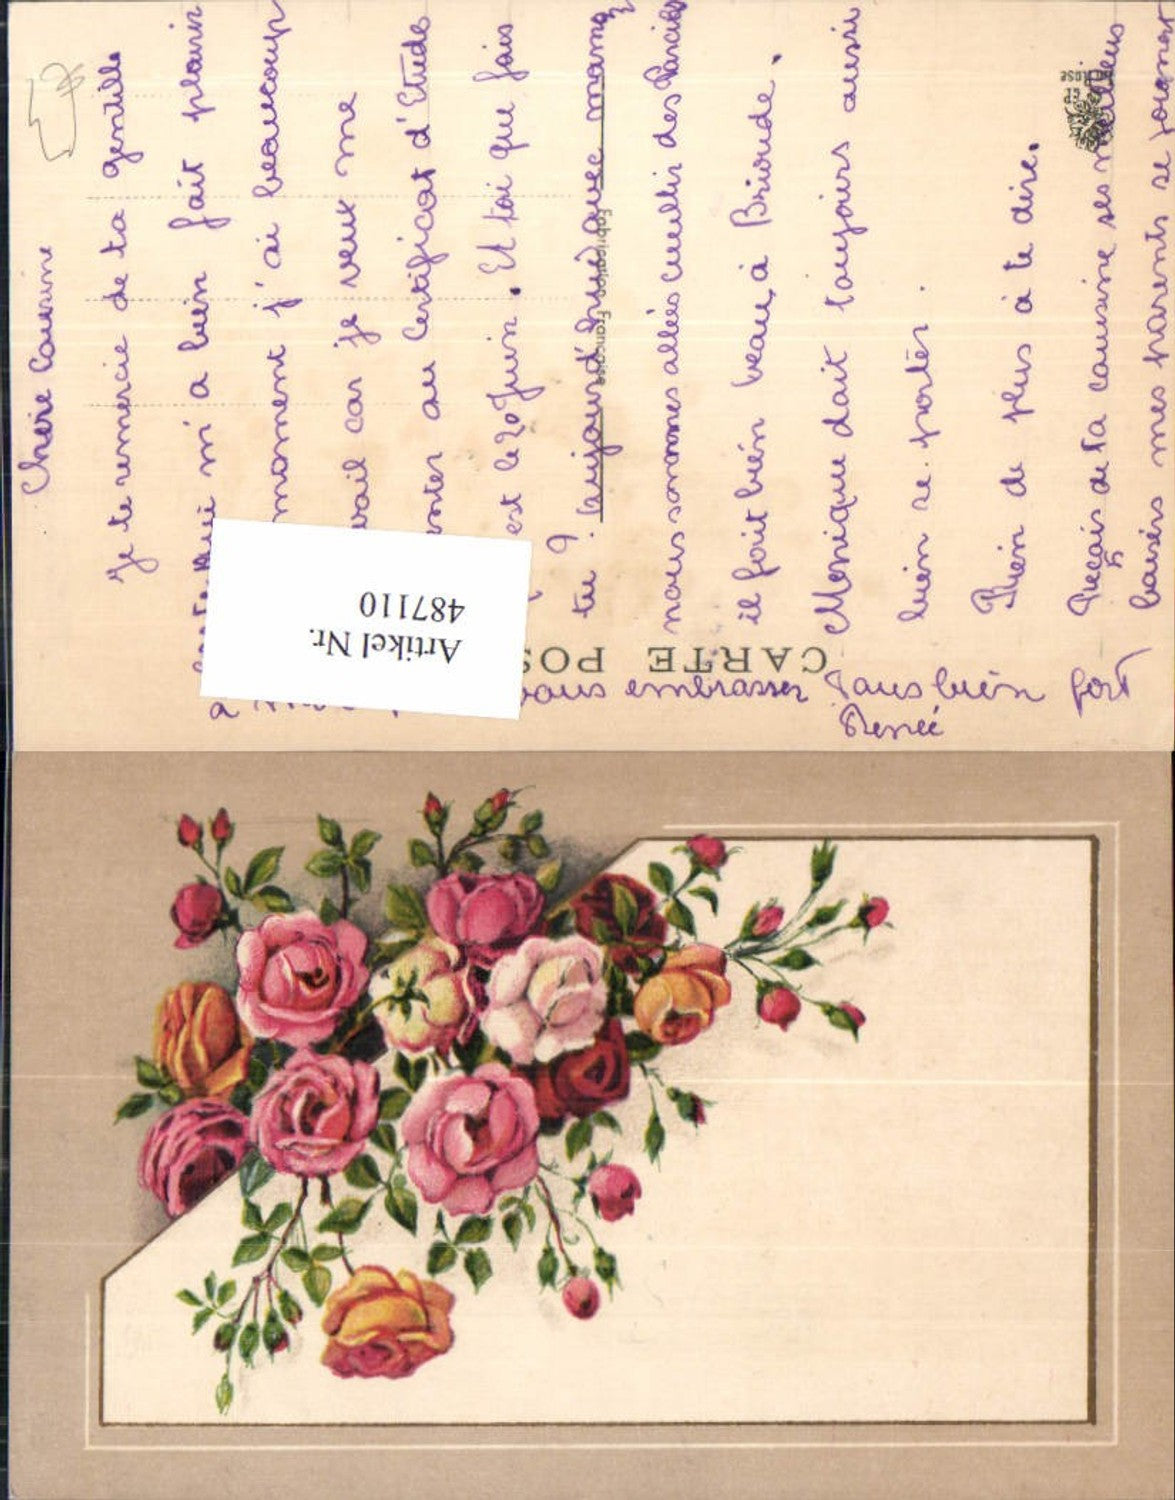 Chère Cousine
Je te remercie de ta gentille
qui m'a bien fait plaisir
moment j'ai beaucoup
car je veux me
au Certificat d'Etude
est le 20 Juin. Et toi que fais
tu ? aujourd'hui avec maman
nous sommes allées cueillir des
il fait bien beau à Brioude.
Monique doit toujours aussi
bien se porter.
Rien de plus à te dire.
Reçois de ta cousine ses meilleurs
baisers mes parents se joignent
à vous embrasser tous bien fort
Renée
CARTE POS
Fabrication Française
Artikel Nr.
487110